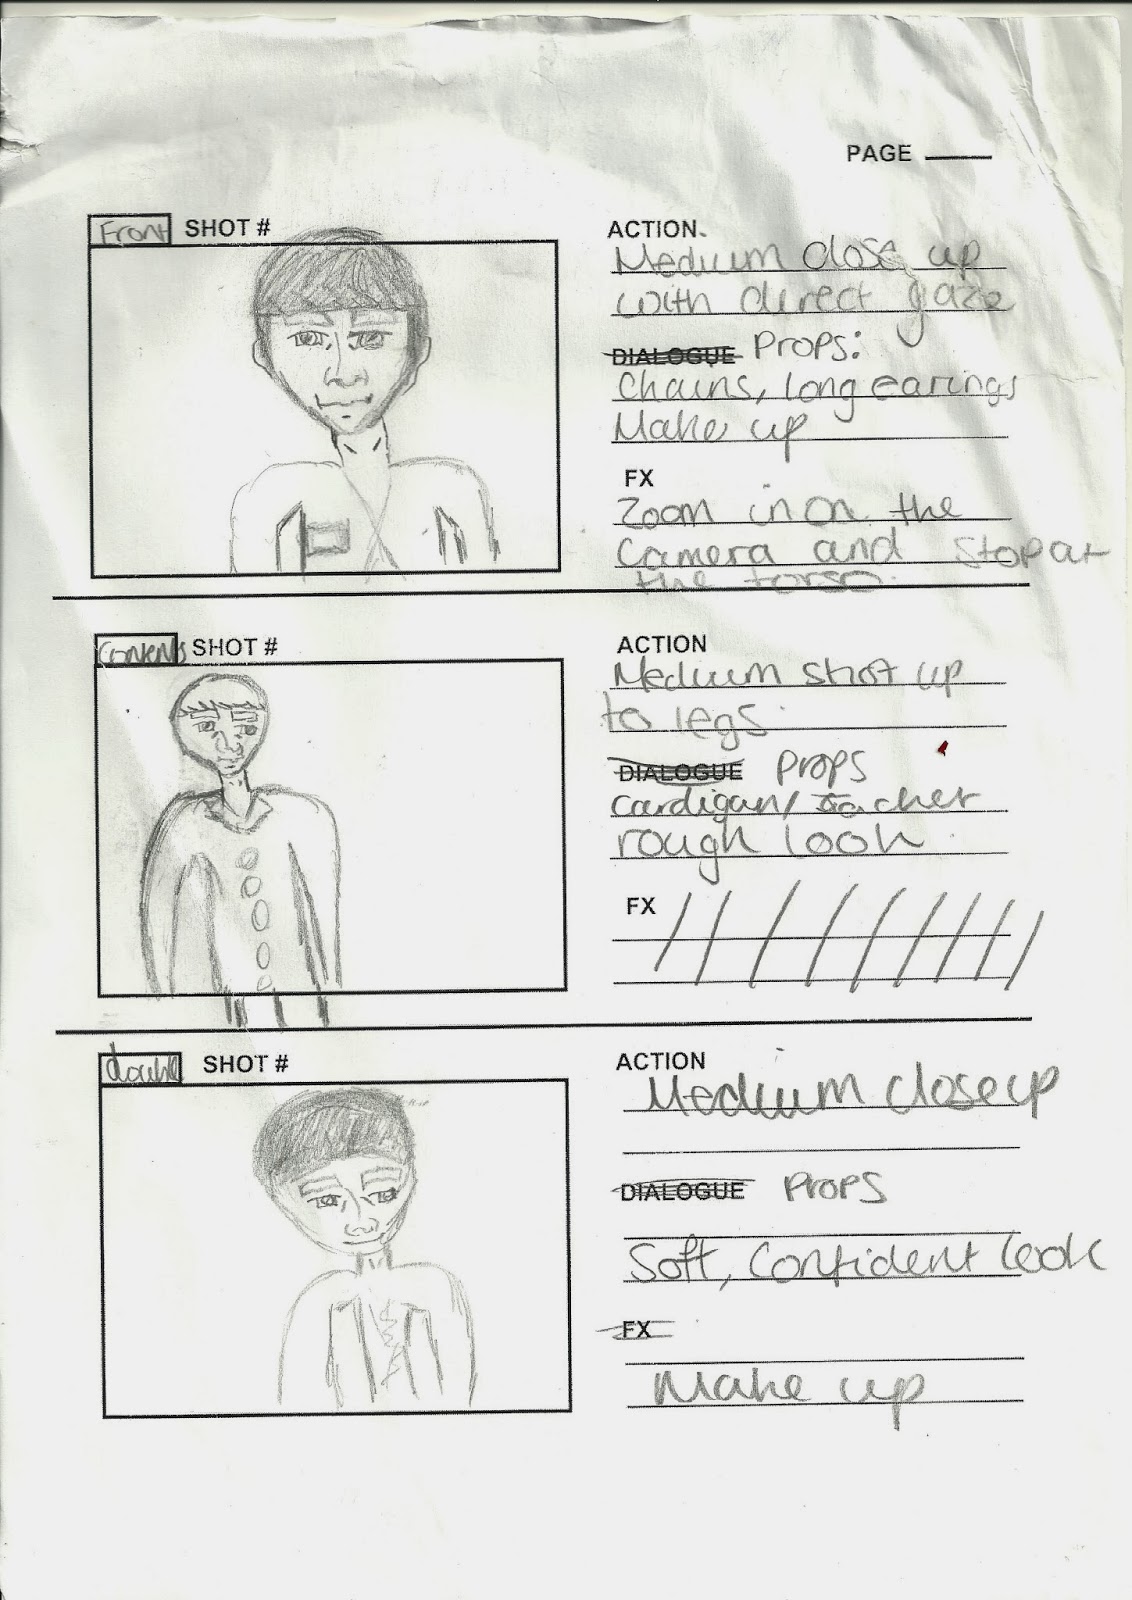 PAGE
Front SHOT #
ACTION
Medium close up
with direct gaze
DIALOGUE Props:
Chains, long earings
Make up
FX
Zoom in on the
camera and stop at
the torso.
contents SHOT #
ACTION
Medium shot up
to legs.
DIALOGUE props
cardigan/
rough look
FX
double SHOT #
ACTION
Medium close up
DIALOGUE props
Soft, confident look
FX
Make up